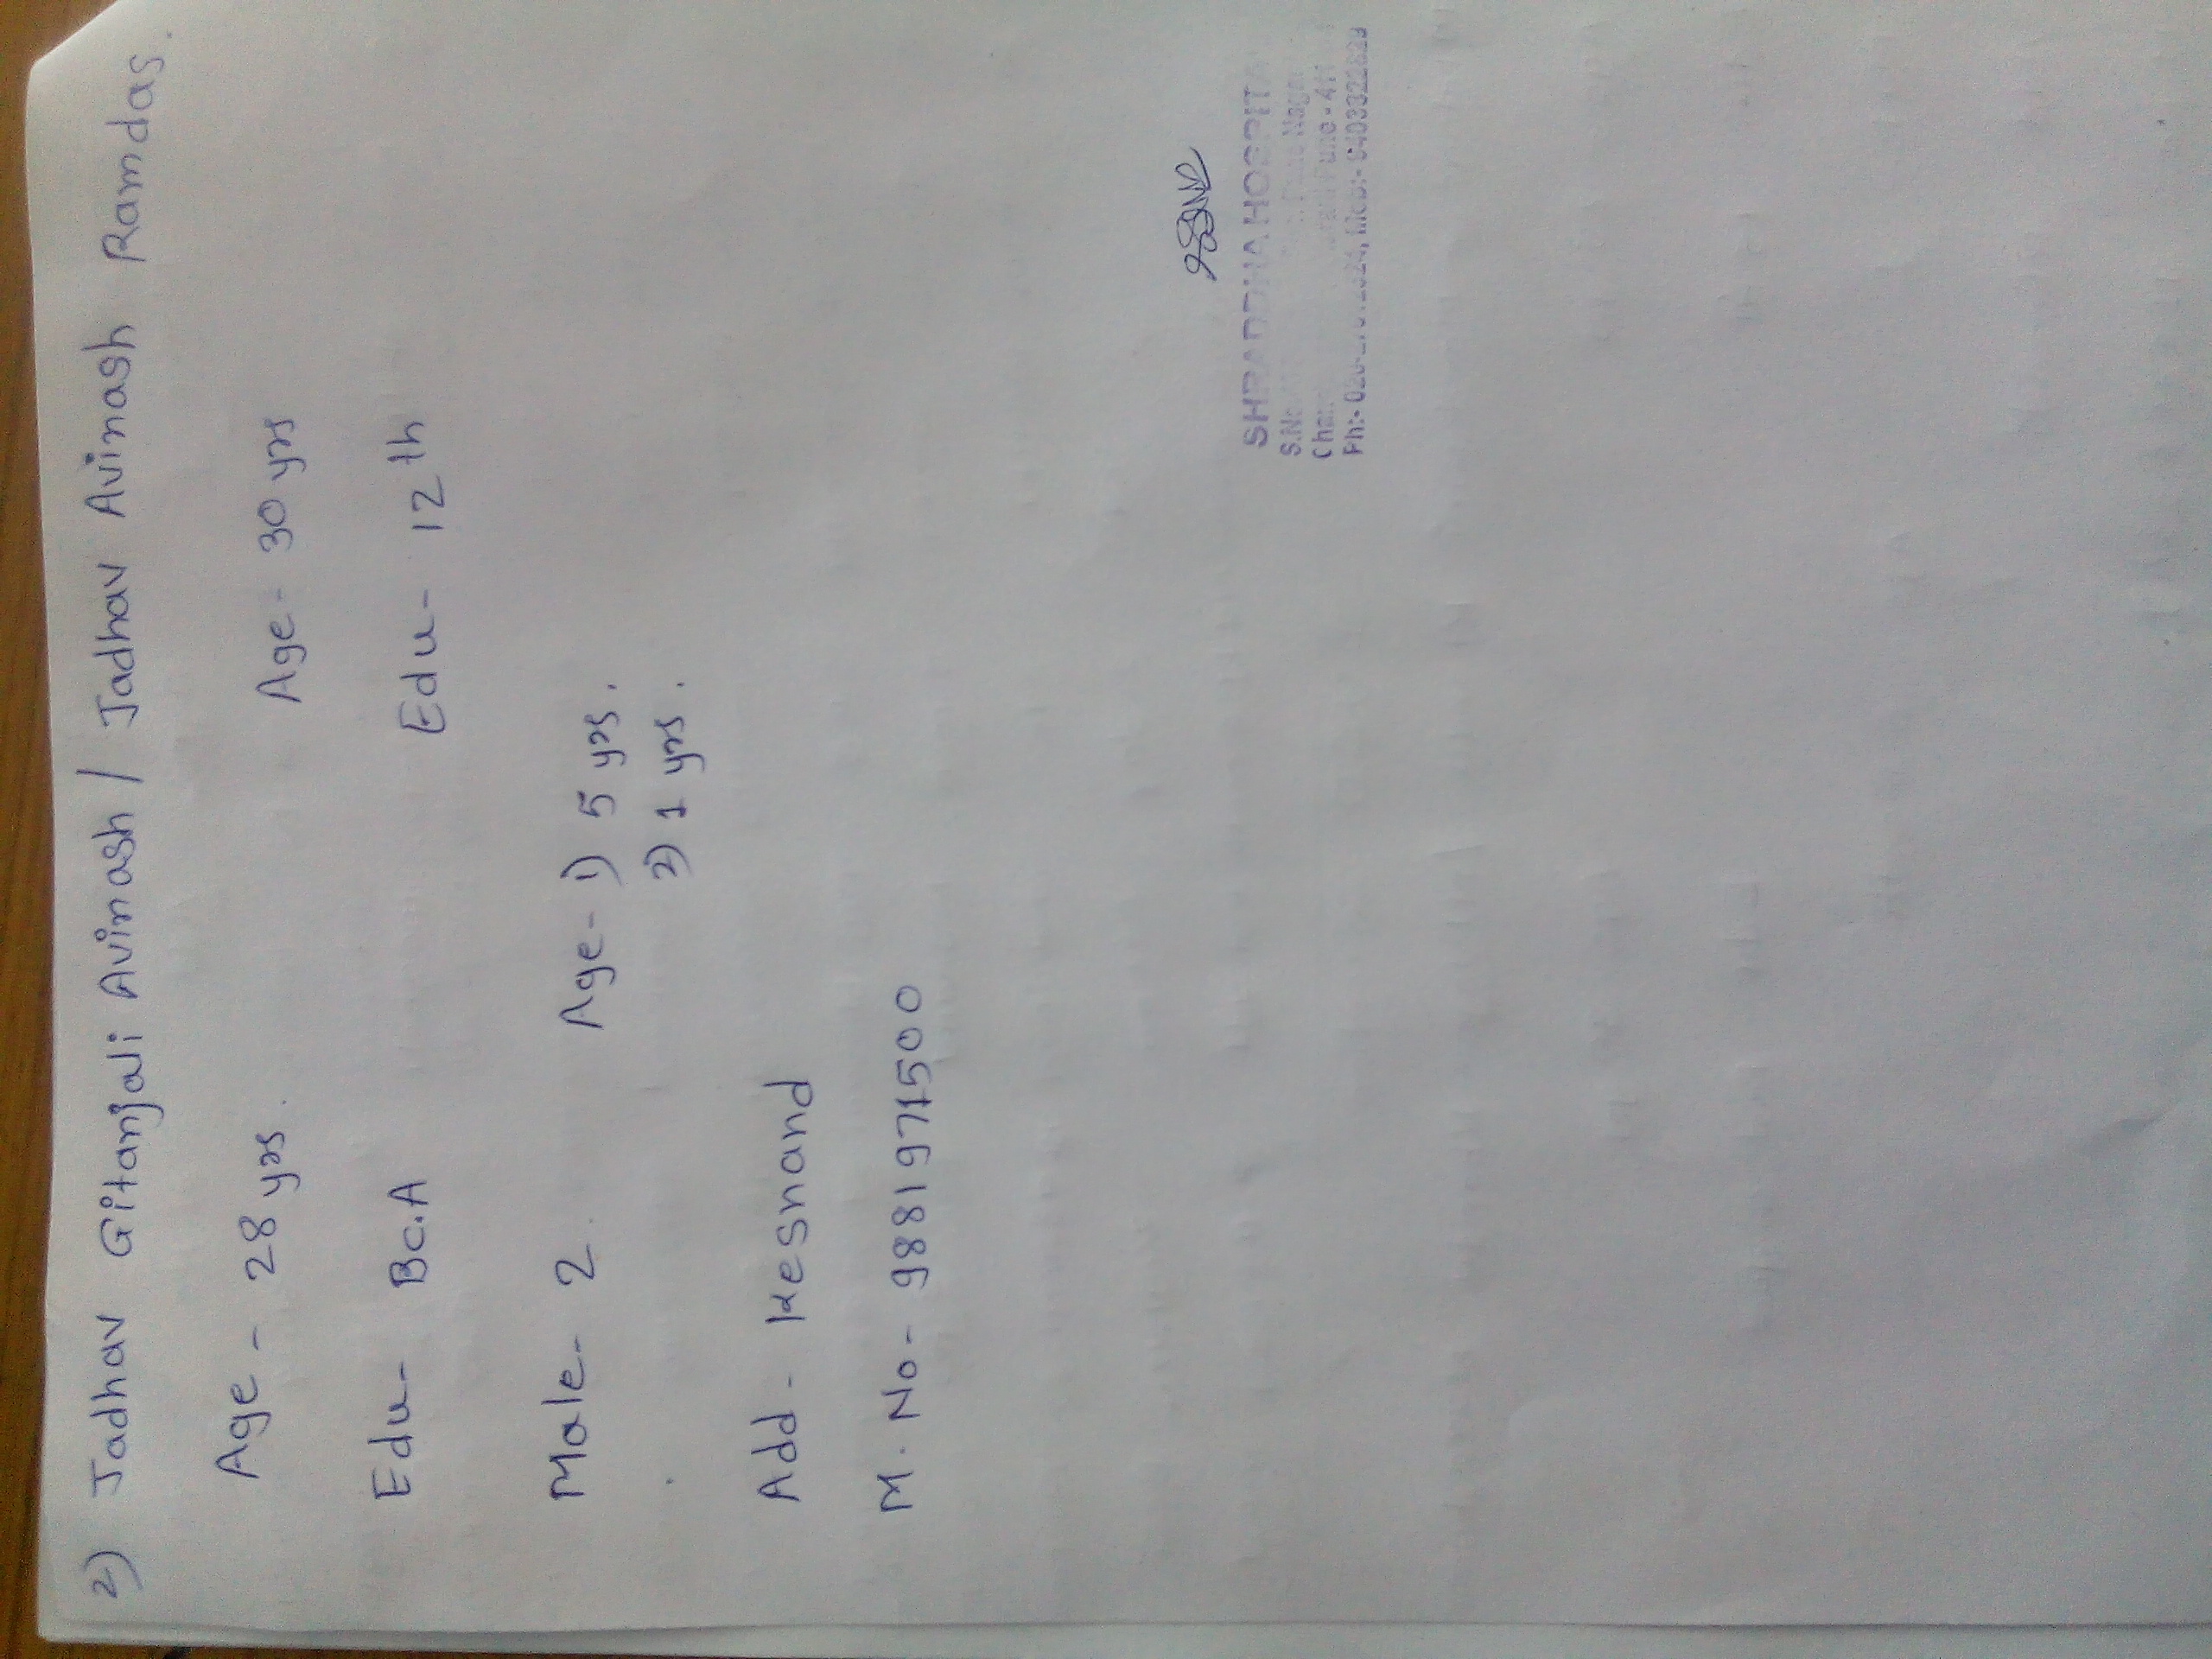 2) Jadhav Gitanjali Avinash / Jadhav Avinash Ramdas.
Age - 28 yrs. Age - 30 yrs
Edu - Bc.A Edu - 12th
Male - 2. Age - 1) 5 yrs.
2) 1 yrs.
Add - Kesnand
M. No - 9881971500
SHRADDHA HOSPITA
S.No. Nagar
Pune - 411
Ph:-